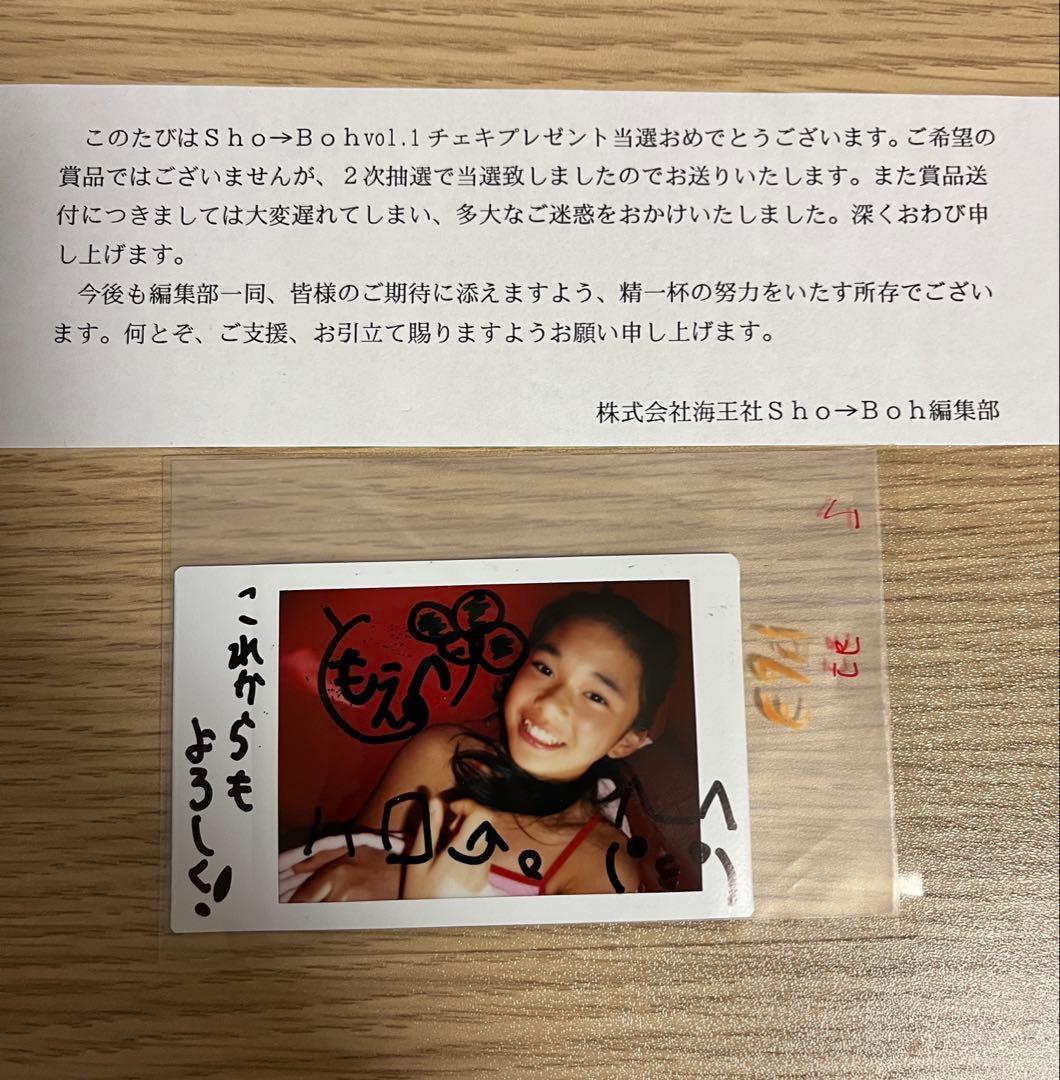 このたびはＳｈｏ→Ｂｏｈvol.1チェキプレゼント当選おめでとうございます。ご希望の
賞品ではございませんが、２次抽選で当選致しましたのでお送りいたします。また賞品送
付につきましては大変遅れてしまい、多大なご迷惑をおかけいたしました。深くおわび申
し上げます。
今後も編集部一同、皆様のご期待に添えますよう、精一杯の努力をいたす所存でござい
ます。何とぞ、ご支援、お引立て賜りますようお願い申し上げます。
株式会社海王社Ｓｈｏ→Ｂｏｈ編集部
これからも
よろしく!
もえ